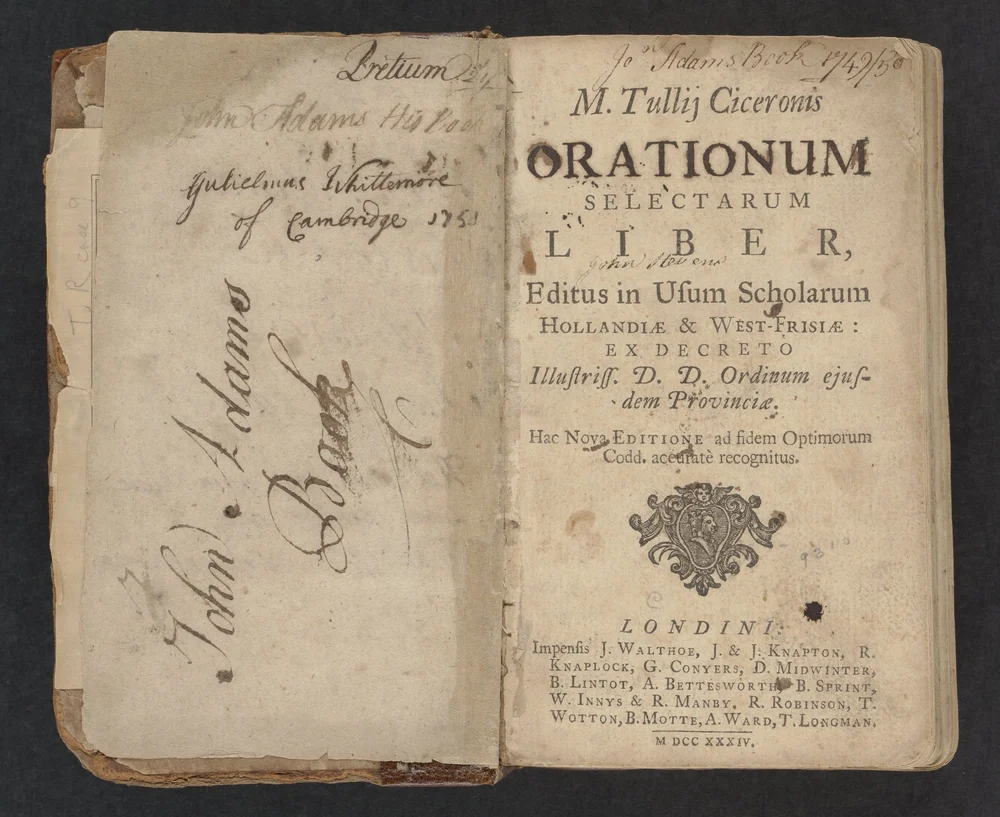 Pretium
John Adams His Book
Gulielmus Whittemore
of Cambridge 1751
John Adams
Book
Jon Adams Book 1749/50
M. Tullij Ciceronis
ORATIONUM
SELECTARUM
LIBER,
John Stevens
Editus in Uſum Scholarum
HOLLANDIÆ & WEST-FRISIÆ:
EX DECRETO
Illuſtriſſ. D. D. Ordinum ejuſ-
dem Provinciæ.
Hac Nova EDITIONE ad fidem Optimorum
Codd. accuratè recognitus.
LONDINI:
Impenſis J. WALTHOE, J. & J. KNAPTON, R.
KNAPLOCK, G. CONYERS, D. MIDWINTER,
B. LINTOT, A. BETTESWORTH, B. SPRINT,
W. INNYS & R. MANBY, R. ROBINSON, T.
WOTTON, B. MOTTE, A. WARD, T. LONGMAN.
M DCC XXXIV.